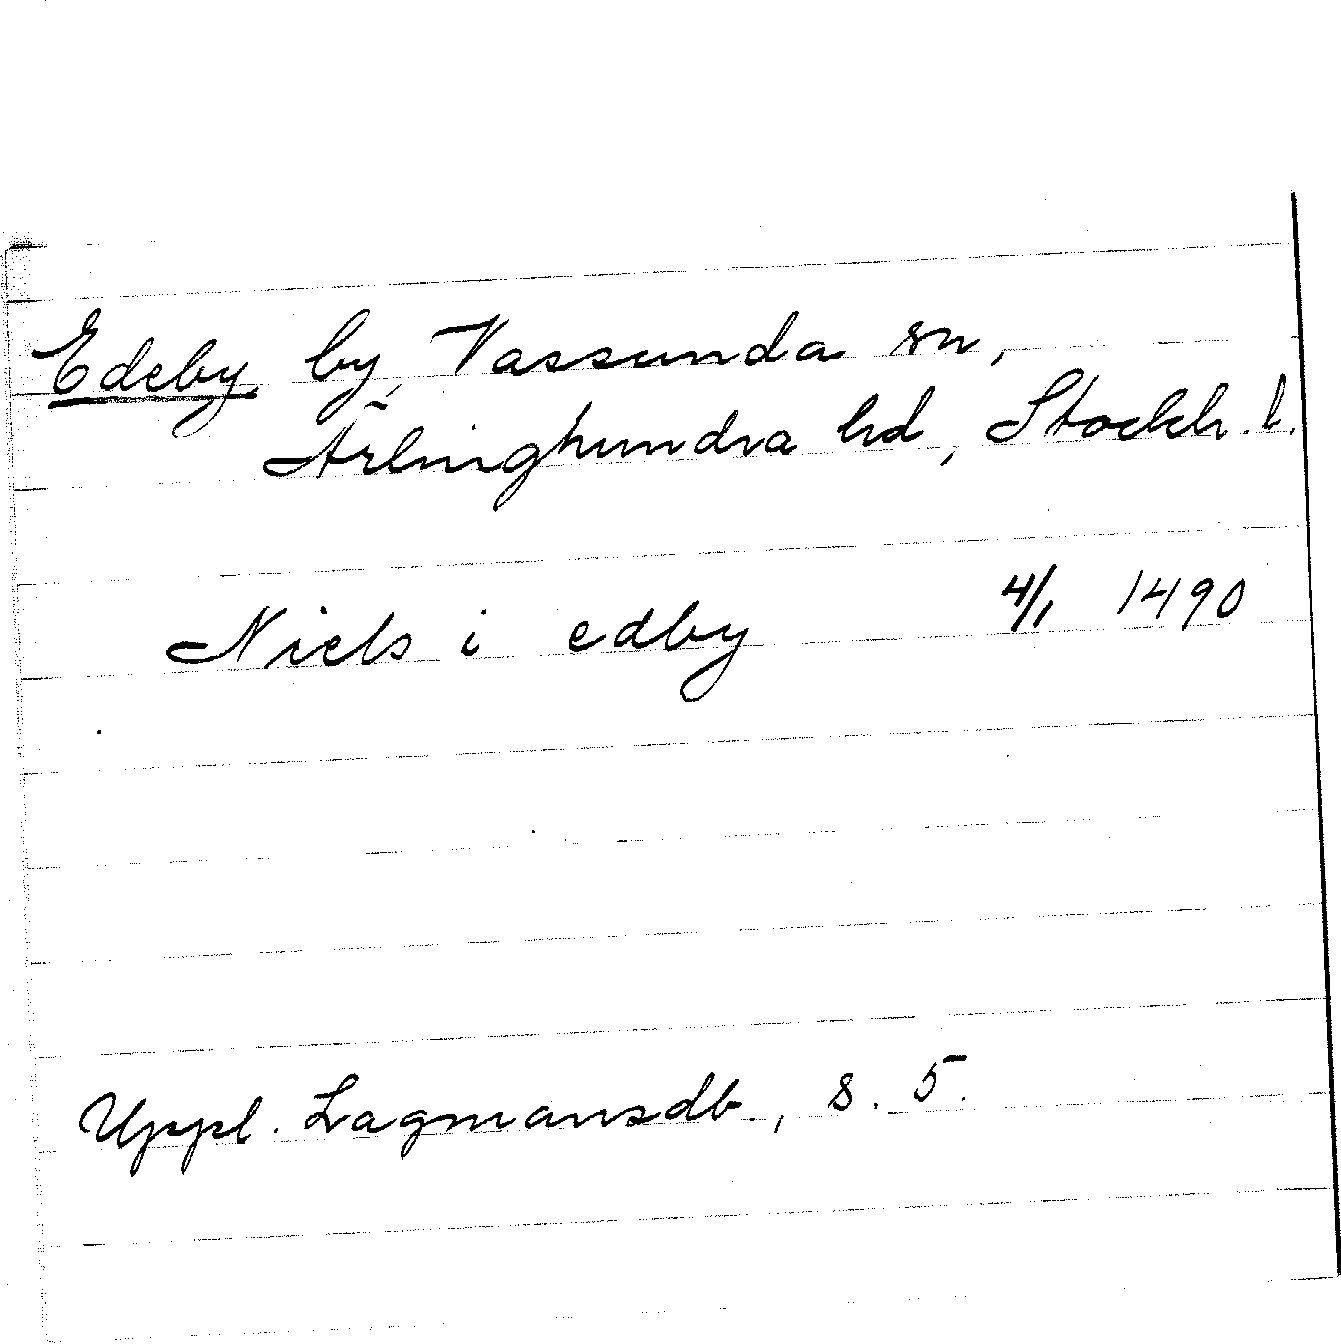 Edeby by, Vassunda sn,
Ärlinghundra hd, Stockh. l.
Niels i edby 4/1 1490
Uppl. Lagmansdb., s. 5.